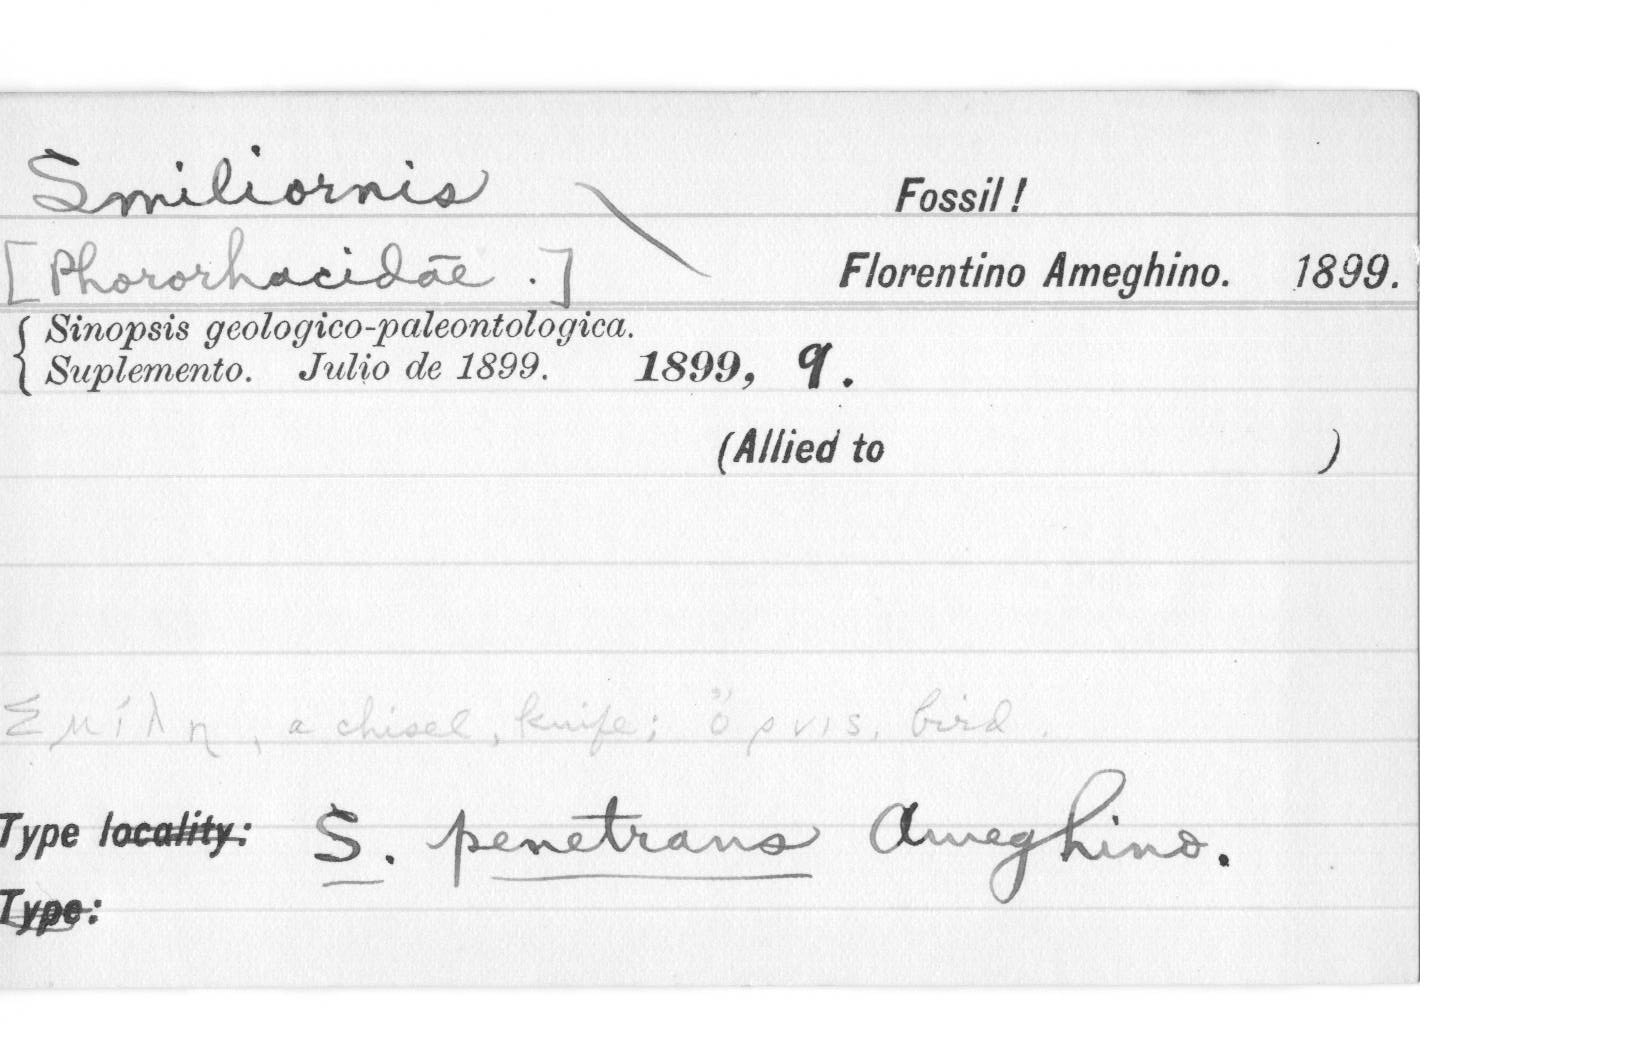 Smiliornis Fossil!
[Phororhacidae.] Florentino Ameghino. 1899.
Sinopsis geologico-paleontologica.
Suplemento. Julio de 1899. 1899, 9.
(Allied to )
Σμίλη, a chisel, knife; ὄρνις, bird.
Type locality: S. penetrans Ameghino.
Type: